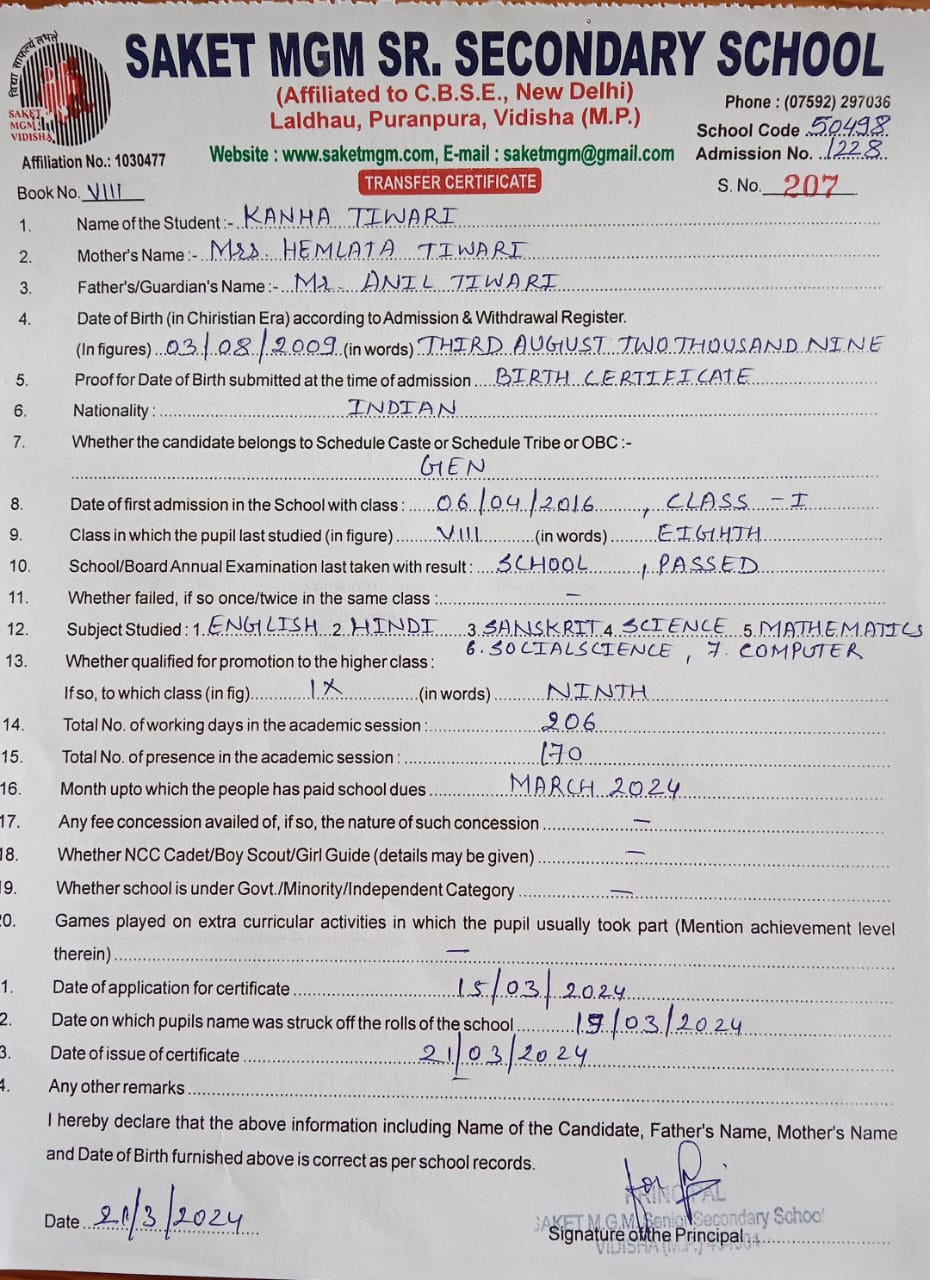 विद्या साफल्यं लभते
SAKET
MGM
VIDISHA
SAKET MGM SR. SECONDARY SCHOOL
(Affiliated to C.B.S.E., New Delhi)
Laldhau, Puranpura, Vidisha (M.P.)
Phone : (07592) 297036
School Code 50498
Affiliation No.: 1030477
Website : www.saketmgm.com, E-mail : saketmgm@gmail.com
Admission No. 1228
Book No. VIII
TRANSFER CERTIFICATE
S. No. 207
1. Name of the Student :- KANHA TIWARI
2. Mother's Name :- Mrs. HEMLATA TIWARI
3. Father's/Guardian's Name :- Mr. ANIL TIWARI
4. Date of Birth (in Chiristian Era) according to Admission & Withdrawal Register.
(In figures) 03/08/2009 (in words) THIRD AUGUST TWO THOUSAND NINE
5. Proof for Date of Birth submitted at the time of admission BIRTH CERTIFICATE
6. Nationality : INDIAN
7. Whether the candidate belongs to Schedule Caste or Schedule Tribe or OBC :-
GEN
8. Date of first admission in the School with class : 06/04/2016, CLASS - I
9. Class in which the pupil last studied (in figure) VIII (in words) EIGHTH
10. School/Board Annual Examination last taken with result : SCHOOL, PASSED
11. Whether failed, if so once/twice in the same class : —
12. Subject Studied : 1. ENGLISH 2. HINDI 3. SANSKRIT 4. SCIENCE 5. MATHEMATICS
6. SOCIAL SCIENCE, 7. COMPUTER
13. Whether qualified for promotion to the higher class :
If so, to which class (in fig) IX (in words) NINTH
14. Total No. of working days in the academic session : 206
15. Total No. of presence in the academic session : 170
16. Month upto which the people has paid school dues MARCH 2024
17. Any fee concession availed of, if so, the nature of such concession —
18. Whether NCC Cadet/Boy Scout/Girl Guide (details may be given) —
19. Whether school is under Govt./Minority/Independent Category —
20. Games played on extra curricular activities in which the pupil usually took part (Mention achievement level
therein) —
1. Date of application for certificate 15/03/2024
2. Date on which pupils name was struck off the rolls of the school 19/03/2024
3. Date of issue of certificate 21/03/2024
4. Any other remarks —
I hereby declare that the above information including Name of the Candidate, Father's Name, Mother's Name
and Date of Birth furnished above is correct as per school records.
for
PRINCIPAL
Date 21/3/2024
SAKET M.G.M. Senior Secondary School
Signature of the Principal
VIDISHA (M.P.)